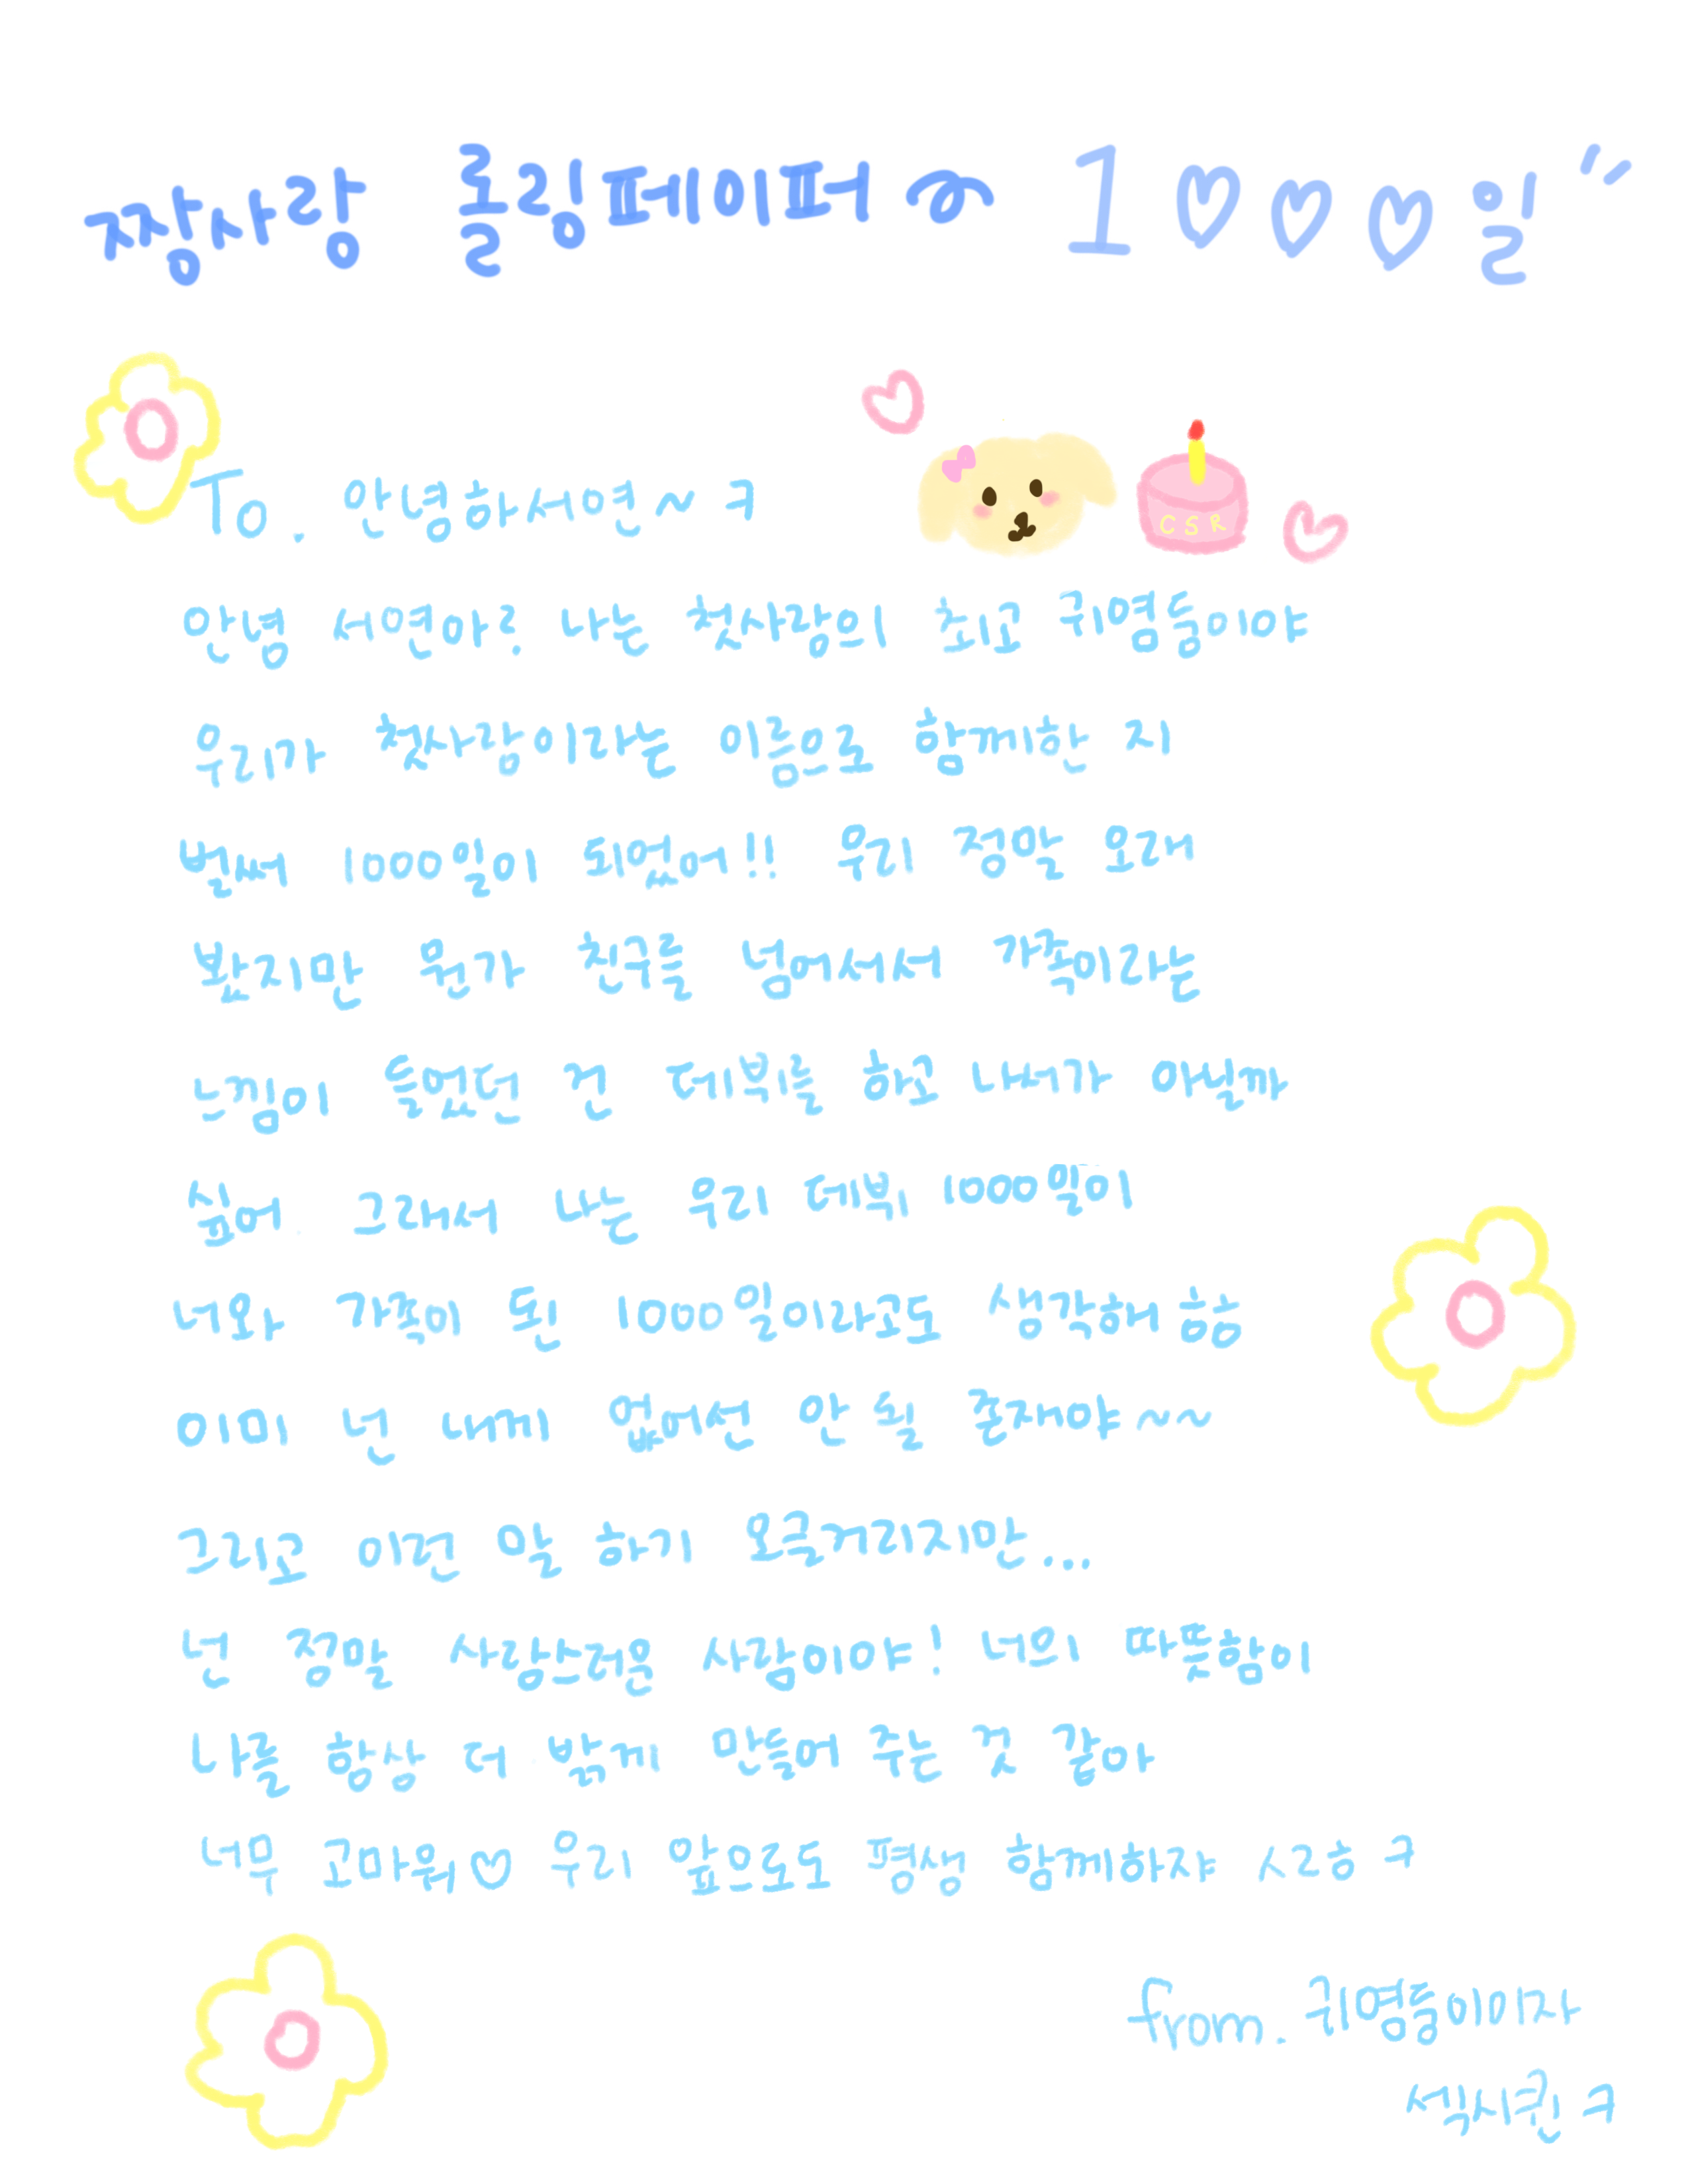 짱사랑 롤링페이퍼 1000일
To. 안녕하서연~ ㅋ
CSR
안녕 서연아? 나는 첫사랑의 최고 귀염둥이야
우리가 첫사람이라는 이름으로 함께한 지
벌써 1000일이 되었어!! 우리 정말 오래
봤지만 뭔가 친구를 넘어서서 가족이라는
느낌이 들었던 건 데뷔를 하고 나서가 아닐까
싶어. 그래서 나는 우리 데뷔 1000일이
너와 가족이 된 1000일이라고도 생각해 흠흠
이미 넌 내게 없어선 안 될 존재야~~
그리고 이런 말 하기 오글거리지만...
넌 정말 사랑스러운 사람이야! 너의 따뜻함이
나를 항상 더 밝게 만들어 주는 것 같아
너무 고마워♡ 우리 앞으로도 평생 함께하쟈 ㅅㄹㅎ ㅋ
from. 귀염둥이이자
섹시퀸 ㅋ